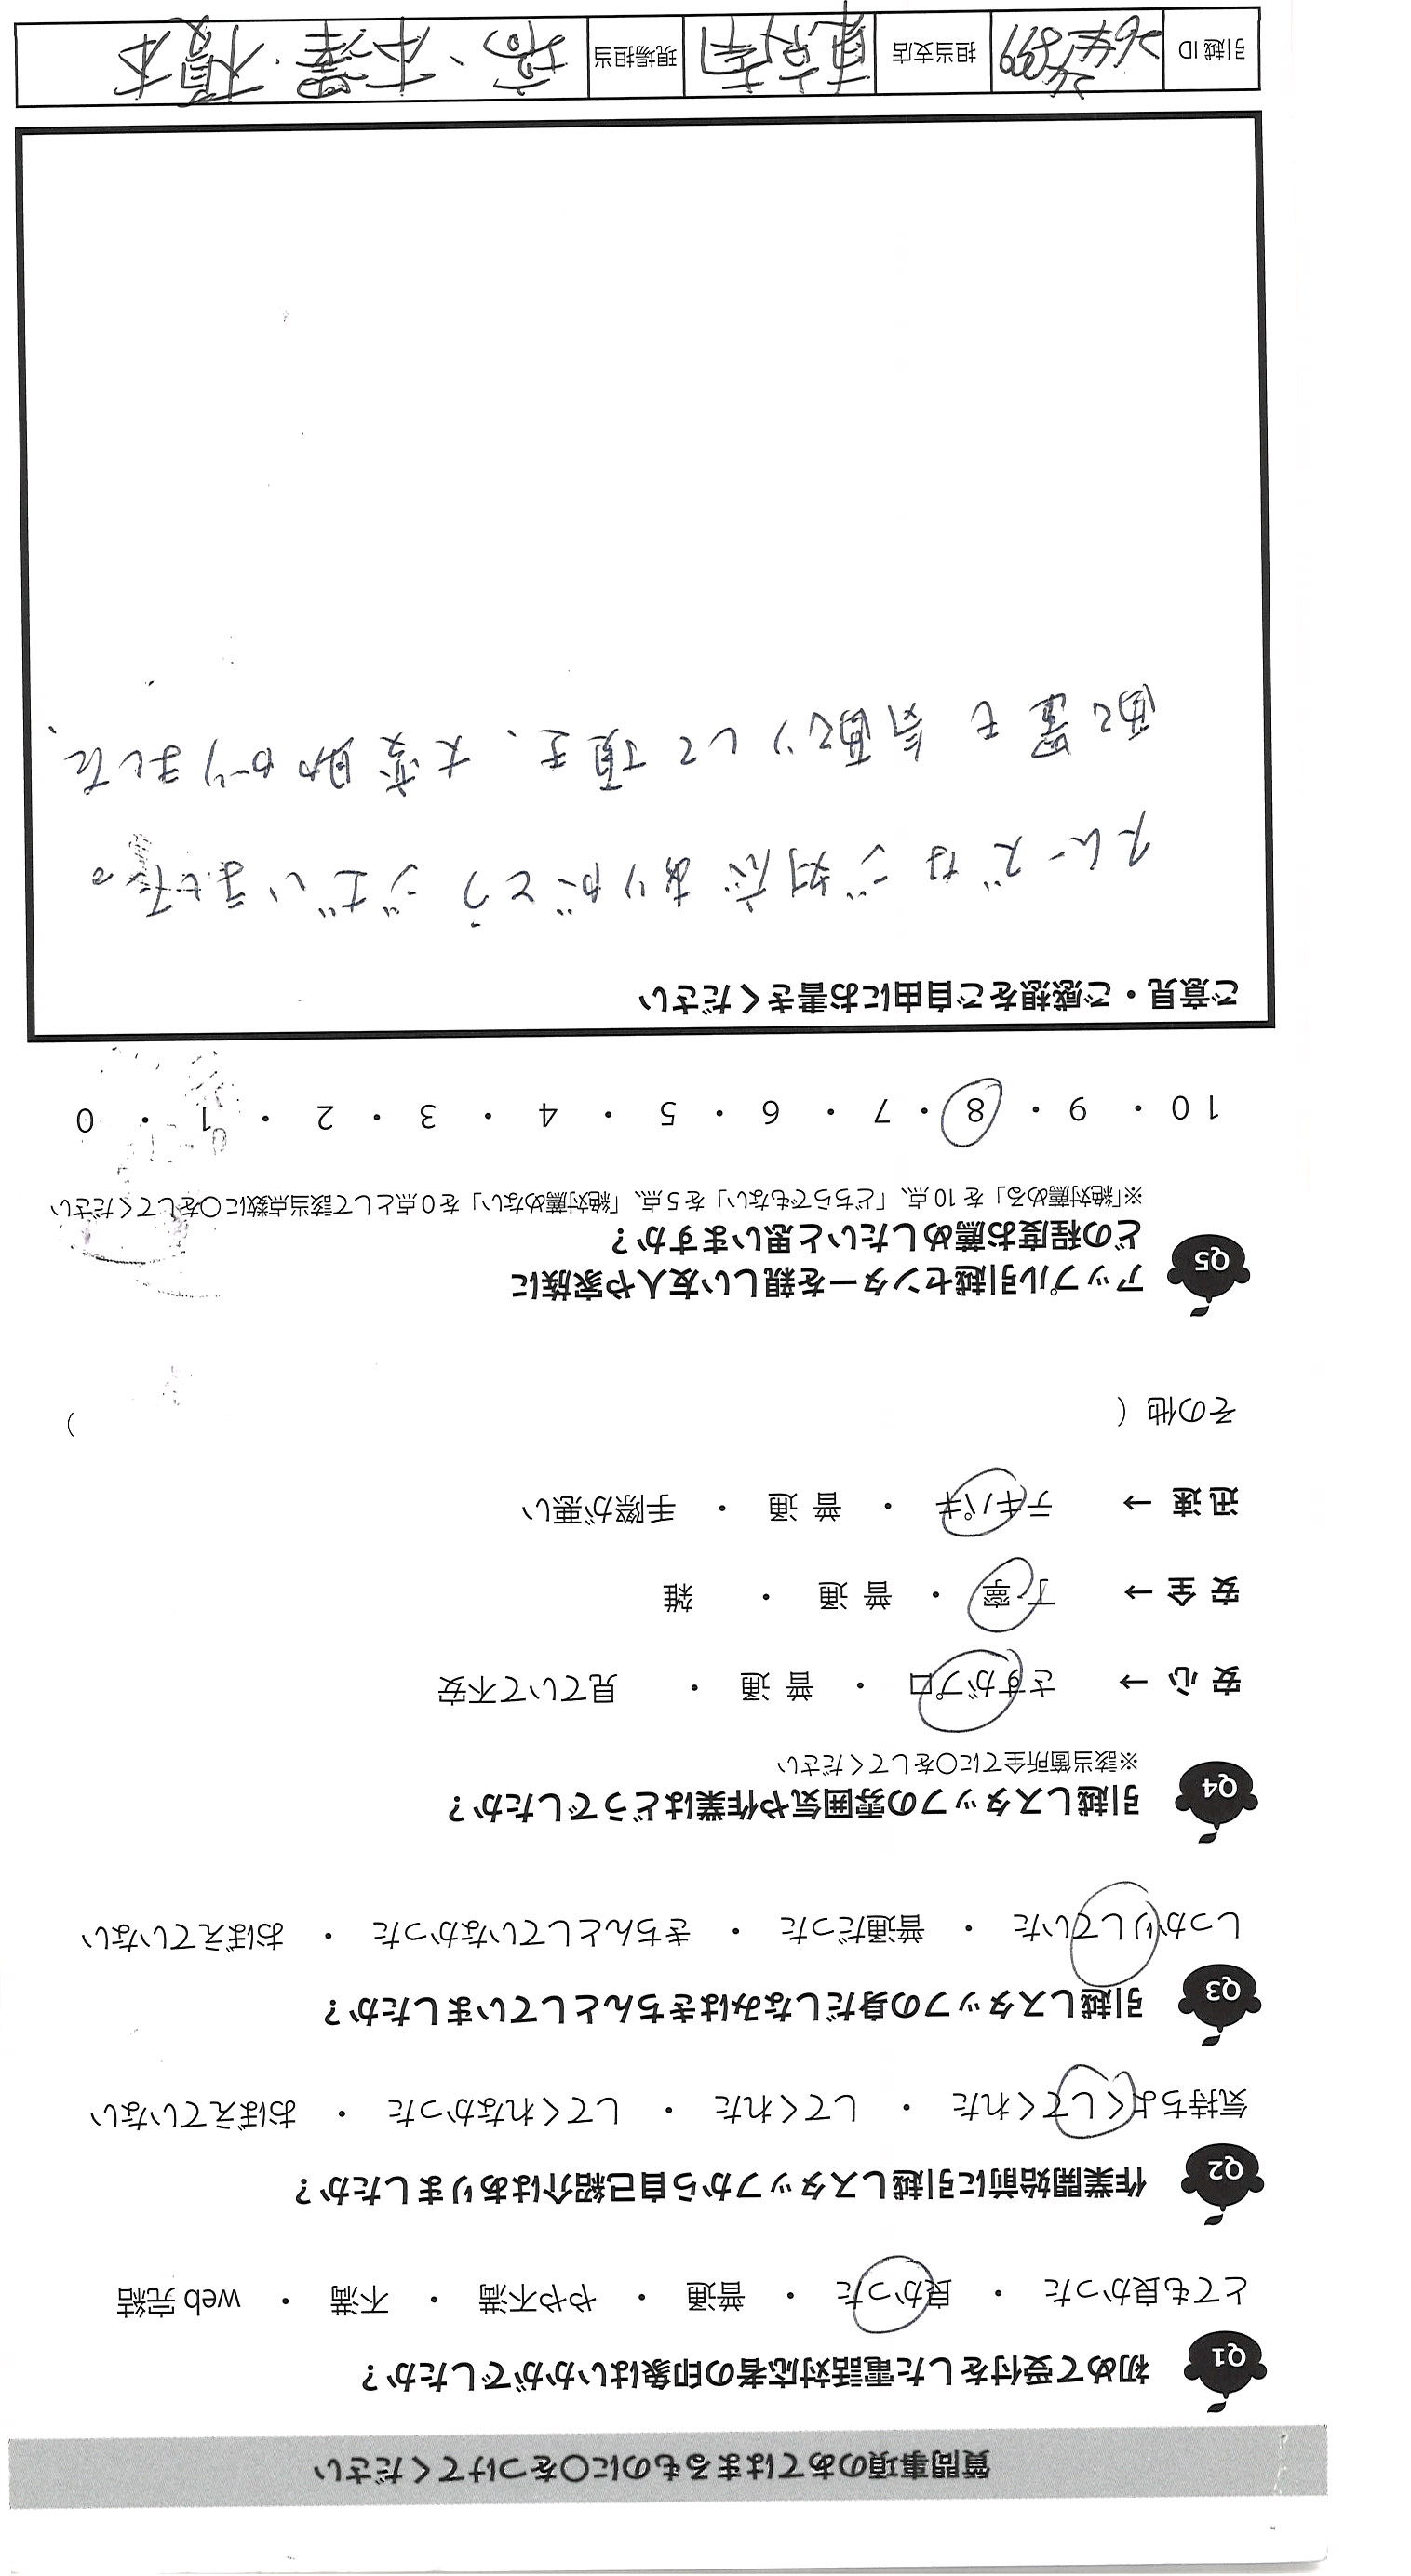 質問事項のあてはまるものに〇をつけてください
Q1 初めて受付をした電話対応者の印象はいかがでしたか？
とても良かった ・ 良かった ・ 普通 ・ やや不満 ・ 不満 ・ web 完結
Q2 作業開始前に引越しスタッフから自己紹介はありましたか？
気持ちよくしてくれた ・ してくれた ・ してくれなかった ・ おぼえていない
Q3 引越しスタッフの身だしなみはきちんとしていましたか？
しっかりしていた ・ 普通だった ・ きちんとしていなかった ・ おぼえていない
Q4 引越しスタッフの雰囲気や作業はどうでしたか？
※該当箇所全てに〇をしてください
安心 → さすがプロ ・ 普通 ・ 見ていて不安
安全 → 丁寧 ・ 普通 ・ 雑
迅速 → テキパキ ・ 普通 ・ 手際が悪い
その他（ ）
Q5 アップル引越センターを親しい友人や家族に
どの程度お薦めしたいと思いますか？
※「絶対薦める」を 10 点、「どちらでもない」を 5 点、「絶対薦めない」を 0 点として該当点数に〇をしてください
10 ・ 9 ・ 8 ・ 7 ・ 6 ・ 5 ・ 4 ・ 3 ・ 2 ・ 1 ・ 0
ご意見・ご感想をご自由にお書きください
スムーズなご対応ありがとうございました。
配置も気配りして頂き、大変助かりました、
引越 ID 担当支店 東京南 現場担当